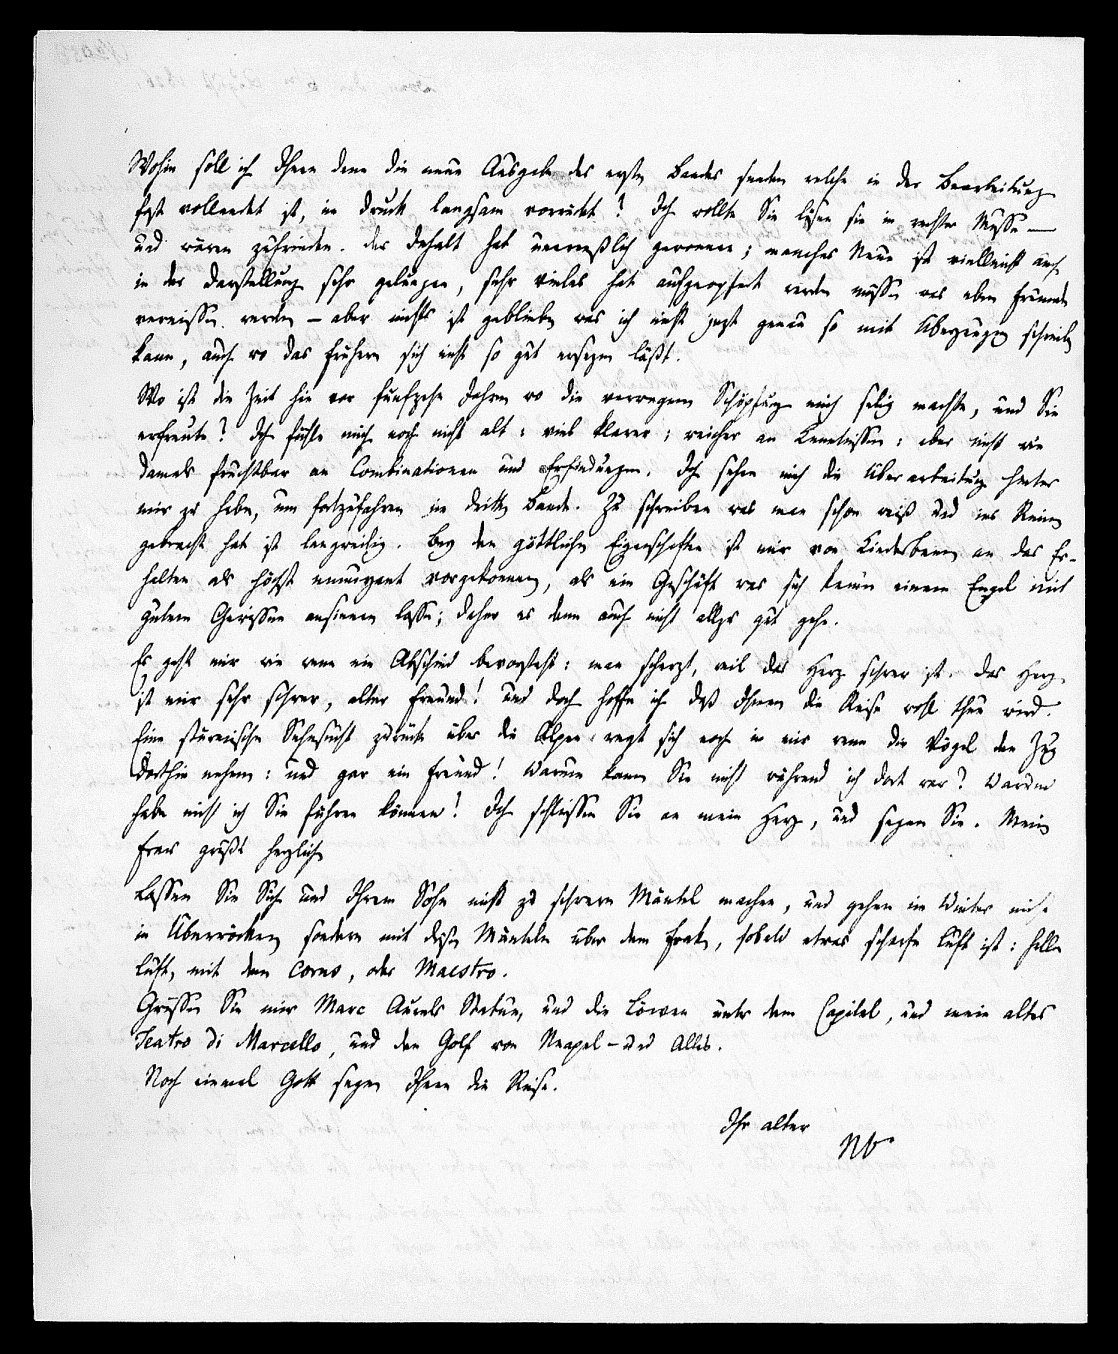 Wohin soll ich Ihnen denn die neue Ausgabe des ersten Bandes senden welche in der Bearbeitung
fast vollendet ist, im Druck langsam vorrückt? Ich wollte Sie läsen sie in rechter Musse —
und wären zufrieden. Der Inhalt hat unermeßlich gewonnen; manches Neue ist vielleicht auch
in der Darstellung sehr gelungen, sehr vieles hat aufgeopfert werden müssen was eben Freunde
vermissen werden – aber nichts ist geblieben was ich nicht jezt genau so mit Überzeugung schreiben
kann, auch wo das frühere sich nicht so gut ersezen läßt.
Wo ist die Zeit hin vor funfzehn Jahren wo die verwegene Schöpfung mich selig machte, und Sie
erfreute? Ich fühle mich noch nicht alt: viel klarer; reicher an Kenntnissen: aber nicht wie
damals fruchtbar an Combinationen und Erfindungen. Ich sehne mich die Überarbeitung hinter
mir zu haben, um fortzufahren im dritten Bande. Zu schreiben was man schon weiß und ins Reine
gebracht hat ist langweilig. Bey den göttlichen Eigenschaften ist mir von Kindesbeinen an das Er-
halten als höchst ennuyant vorgekommen, als ein Geschäft was sich kaum einem Engel mit
gutem Gewissen ansinnen lasse; daher es denn auch nicht allzu gut gehe.
Es geht mir wie wenn ein Abschied bevorsteht: man scherzt, weil das Herz schwer ist. Das Herz
ist mir sehr schwer, alter Freund! Und doch hoffe ich daß Ihnen die Reise wohl thun wird.
Eine stürmische Sehnsucht zurück über die Alpen regt sich noch in mir wenn die Vögel den Zug
dorthin nehmen: und gar ein Freund! Warum kamen Sie nicht während ich dort war? Warum
habe nicht ich Sie führen können! Ich schließe Sie an mein Herz, und segne Sie. Meine
Frau grüßt herzlich
Lassen Sie Sich und Ihrem Sohn nicht zu schwere Mäntel machen, und gehen im Winter nicht
in Überröcken sondern mit diesen Mänteln über dem Frak, sobald etwas scharfe Luft ist: helle
Luft, mit dem Corno, oder Maestro.
Grüssen Sie mir Marc Aurels Statue, und die Löwen unter dem Capitol, und mein altes
Teatro di Marcello, und den Golf von Neapel – und Alles.
Noch einmal Gott segne Ihnen die Reise.
Ihr alter
Nbr